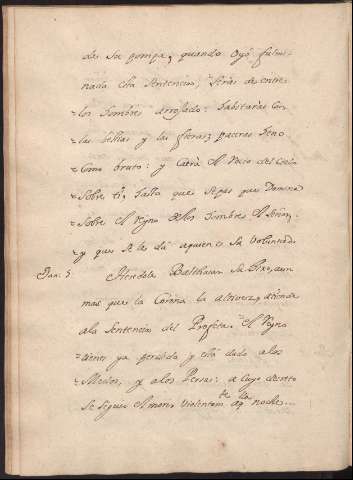 de su pompa, quando oyó fulmi-
nada esta Sentencia: Serás de entre
los hombres arrojado: habitarás con
las bestias y las fieras; pacerás heno
como bruto: y caerá el Rocio del Cielo
sobre ti, hasta que sepas que Domina
sobre el Reyno de los hombres el Señor,
y que se le dá aquien es su voluntad.
Dan. 5 Heredole Balthasar su hixo, aun
mas que la Corona la altivez, y
ala Sentencia del Profeta: el Reyno
tienes ya perdido y está dado alos
Medos, y alos Persas: a cuyo decreto
se sigue el morir violentamte. aqlla noche...